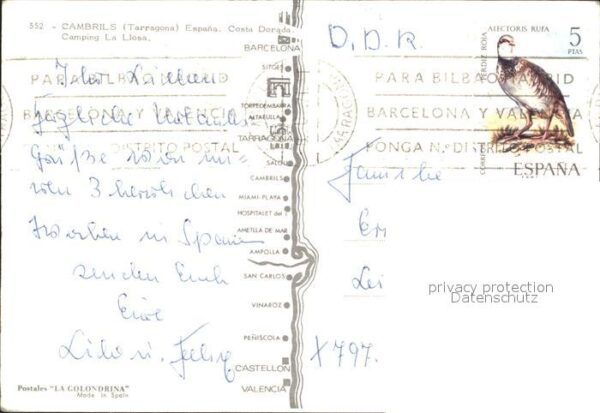 552 - CAMBRILS (Tarragona) España. Costa Dorada.
Camping La Llosa.
D.D.R.
ALECTORIS RUFA
PERDIZ ROJA
5
PTAS
CORREOS
ESPAÑA
PARA BILBAO MADRID
BARCELONA Y VALENCIA
PONGA N.º DISTRITO POSTAL
PARA BILBAO MADRID
BARCELONA Y VALENCIA
PONGA N.º DISTRITO POSTAL
BARCELONA
SITGES
TORREDEMBARRA
ALTAFULLA
TARRAGONA
SALOU
CAMBRILS
MIAMI-PLAYA
HOSPITALET del I
AMETLLA DE MAR
AMPOLLA
SAN CARLOS
VINAROZ
PEÑISCOLA
CASTELLON
VALENCIA
Ihr Lieben
Grüße von un-
3 herrlichen
Wochen in Spanien
senden Euch
Eure
Familie
Er
Lei
X 797.
privacy protection
Datenschutz
Postales "LA GOLONDRINA"
Made in Spain